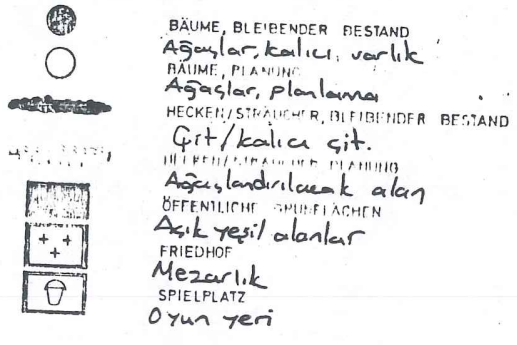 BÄUME, BLEIBENDER BESTAND
Ağaçlar, kalıcı, varlık
BÄUME, PLANUNG
Ağaçlar, planlama
HECKEN/STRÄUCHER, BLEIBENDER BESTAND
Çit/kalıcı çit.
HECKEN/STRÄUCHER PLANUNG
Ağaçlandırılacak alan
ÖFFENTLICHE GRÜNFLÄCHEN
Açık yeşil alanlar
FRIEDHOF
Mezarlık
SPIELPLATZ
Oyun yeri